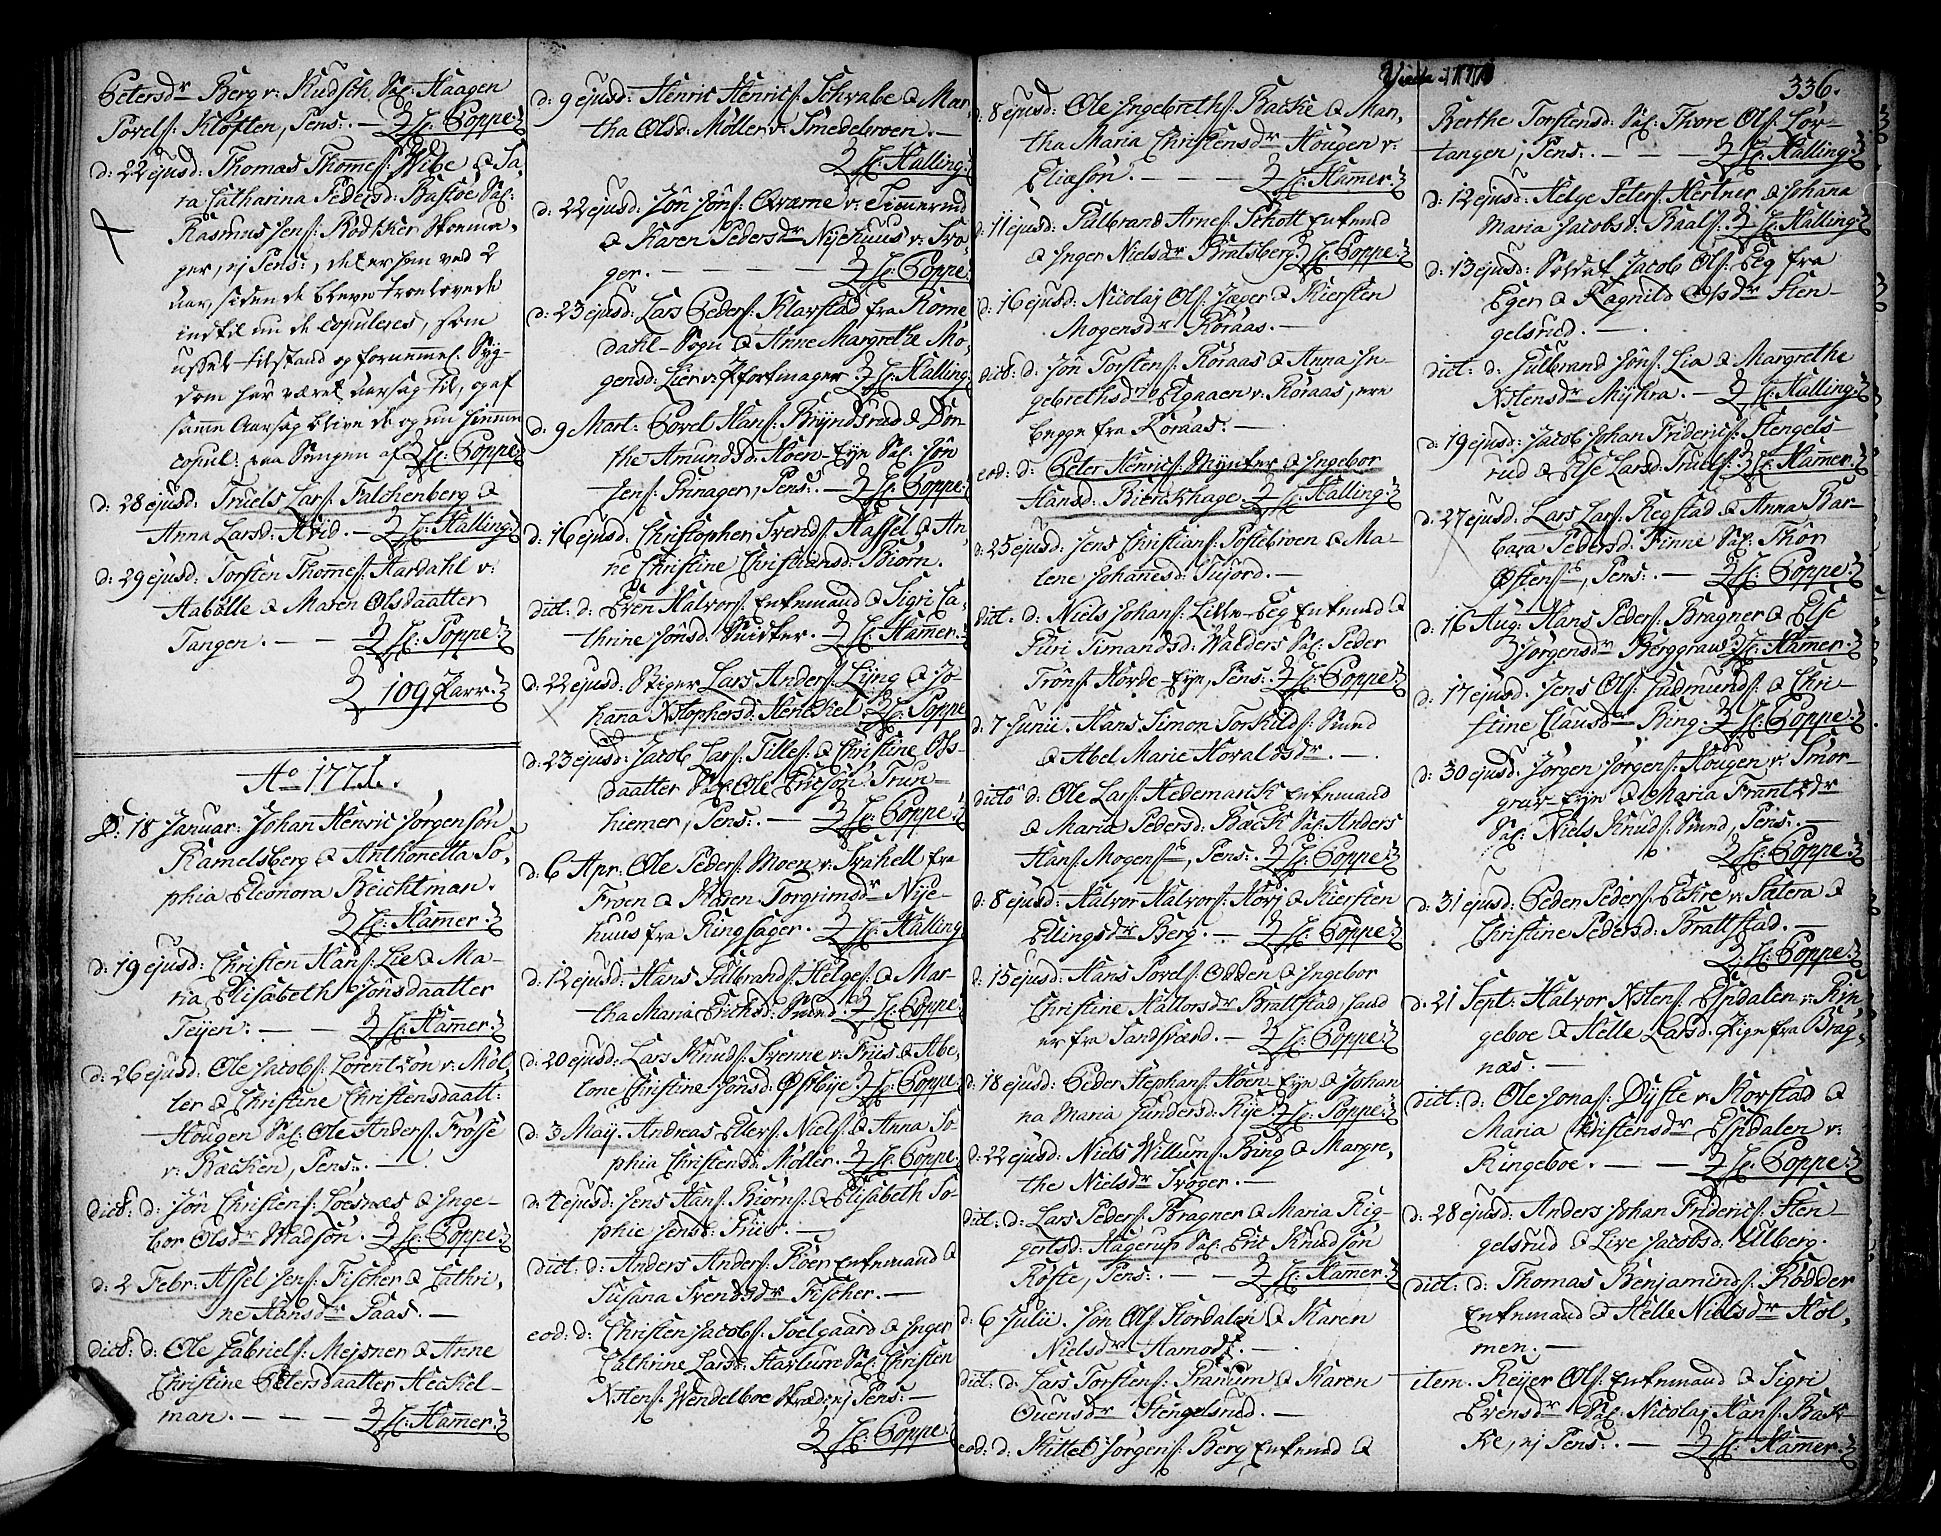 Petersdr Berg v: Kudsch, Sal: Haagen
Povels: Kloften, Pens:. — H: Poppe.
d: 22 ejusd: Thomas Thomes: Wibe & Sa-
ra Catharina Pedersd: Bastøe Sal:
Rasmus Jens: Rødtker
ger, ej Pens:,
siden de bleve trolovede
indtil nu de copuleres, som
ussel tilstand og fornemmel: Syg-
dom har været aarsag til, og af
samme Aarsag blive de og nu hiemme
copul: paa Sengen af H: Poppe
d: 28 ejusd: Truels Lars: Falchenberg &
Anna Larsd: Hvid. — H: Halling
d: 29 ejusd: Torsten Thomes: Hardahl v:
Aabølle & Maren Olsdaatter
Tangen. — — H: Poppe
109 Parr.
Ao 1771.
D: 18 Januar: Johan Henric Jørgensøn
Ramelsberg & Anthonetta So-
phia Eleonora Beichtman.
H: Hamer
d: 19 ejusd: Christen Hans: Lie & Ma-
ria Elisabeth Jonsdaatter
Teijen: — — H: Hamer
d: 26 ejusd: Ole Jacobs: Lorentzon v: Møl-
ler & Christine Christensdaatt:
Hougen Sal: Ole Anders: Frøse
v: Bæcken, Pens:. —
dict: d: Jøn Christens: Løesnæs & Inge-
bor Olsdr Madsøn. H: Poppe
d: 2 Febr: Assel Jens: Fischer & Cathri-
ne Hansdr Paas. —
dict: d: Ole Gabriels: Mejsner & Anne
Christine Petersdaatter Heckel-
man. — — — H: Hamer
d: 9 ejusd: Henric Henrics: Schvabe & Mar-
tha Olsd: Møller v: Smedebroen. —
H: Halling
d: 22 ejusd: Jøn Jøns: Qværne v: Timmerud
& Karen Pedersdr Nijehuus v: Svo-
ger. — — — — H: Poppe
d: 23 ejusd: Lars Peders: Klavstad fra Rome-
dahl-Sogn & Anne Margrethe Mo-
gensd: Lier v: Pfortmager. H: Halling
d: 9 Mart: Povel Hans: Bryndsrud & Dor-
the Amundsd: Hoen-Eye Sal: Jøn
Jens: Prinager, Pens:. — H: Poppe
d: 16 ejusd: Christopher Svends: Hassel & An-
ne Christine Christiansd: Biørn.
dict: d: Even Halvors: Enkemand & Sigri Ca-
thrine Jønsd: Snidker. — H: Hamer
d: 22 ejusd: Stiger Lars Anders: Lyng & Jo-
hana Xstophersd: Henckel. H: Poppe
d: 23 ejusd: Jacob Lars: Tilles: & Christine Ols-
daatter Sal: Ole Ericson Trun-
hiemer, Pens:. — H: Poppe
d: 6 Apr: Ole Peders: Moen v: Svahell fra
Froen & Karen Torgrimsdr Nije-
huus fra Ringsager. — H: Halling
d: 12 ejusd: Hans Gulbrands: Helges: & Mar-
tha Maria Ericksd: Smed. H: Poppe
d: 20 ejusd: Lars Knuds: Svenne v: Friis & Abe-
lone Christine Jonsd: Østbye. H: Poppe
d: 3 Maij. Andreas Ellers: Niels: & Anna So-
phia Christensd: Møller. H: Poppe
d: 4 ejusd: Jens Hans: Biørns: & Elisabeth So-
phie Jensd: Friis. —
dict: d: Anders Anders: Roer Enkemand &
Susana Svendsdr Fischer. —
eod: d: Christen Jacobs: Soelgaard & Inger
Cathrine Larsd: Harlum Sal: Christen
Xstens: Wendelboe Stræde, ej Pens:—
H: Poppe
d: 8 ejusd: Ole Ingebreths: Backe & Mar-
tha Maria Christensdr Hougen v:
Eliasøn. — — — H: Hamer
d: 11 ejusd: Gulbrand Arnes: Schott Enkemd
& Inger Nielsdr Bratsberg. H: Poppe
d: 16 ejusd: Nicolaj Ols: Jæger & Kiersten
Mogensdr Røraas. —
dict: d: Jøn Torstens: Røraas & Anna In-
gebrethsdr Elgaaen v: Røraas, ere
begge fra Røraas. —
eod: d: Peter Henrics: Mynter & Ingebor
Hansd: Bierckhage. H: Halling
d: 25 ejusd: Jens Christians: Toftebroen & Ma-
lene Johanesd: Tujord. —
dict: d: Niels Johans: Lille-Eeg Enkemd &
Guri Simandsd: Walders Sal: Peder
Trons: Korde-Eye, Pens:. H: Poppe
d: 7 Junii. Hans Simon Torkilds: Smed
& Abel Marie Hovaldsdr. —
dicto d: Ole Lars: Hedemarck Enkemand
& Maria Pedersd: Bæck Sal: Anders
Hans: Mogens:, Pens:. H: Poppe
d: 8 ejusd: Halvor Halvors: Korj & Kiersten
Ellingsdr Berg. — H: Poppe
d: 15 ejusd: Hans Povels: Odden & Ingebor
Christine Hallorsdr Brattstad, hand
er fra Sandsværd. — H: Poppe
d: 18 ejusd: Peder Stephans: Hoen-Eye & Johan-
na Maria Gundersd: Rije. H: Poppe
d: 22 ejusd: Niels Willums: Bing & Margre-
the Nielsdr Svoger. —
dict: d: Lars Peders: Bragner & Maria Rig-
gertsd: Hagerup Sal: Eric Knudsøn
Røste, Pens:. — — H: Hamer
d: 6 Julii. Jøn Ols: Hordalen & Karen
Nielsdr Hamodt. —
dict: d: Lars Torstens: Pranum & Karen
Ouensdr Hengelsrud. —
eod: d: Kittel Jørgens: Berg Enkemd &
336.
Berthe Torstensd: Sal: Thore Ols: Lor-
tangen, Pens:. — — — H: Halling
d: 12 ejusd: Helge Peters: Hertner & Johana
Maria Jacobsd: Baals:. H: Halling
d: 13 ejusd: Soldat Jacob Ols: Eeg fra
Eger & Ragnild Olsdr Hen-
gelsrud. —
dict: d: Gulbrand Jøns: Lia & Margrethe
Xstensdr Myhra. — H: Halling
d: 19 ejusd: Jacob Johan Friderics: Hengels-
rud & Else Larsd: Truels: H: Hamer
d: 27 ejusd: Lars Lars: Regstad & Anna Bar-
bara Pedersd: Finne Sal: Thor
Østens:, Pens:. — H: Poppe
d: 16 Aug: Hans Peders: Bragner & Else
Jørgensdr Berggraus H: Hamer
d: 17 ejusd: Jens Ols: Gudmunds: & Chri-
stine Clausdr Bing. H: Poppe
d: 30 ejusd: Jørgen Jørgens: Hougen v: Smør-
grav-Eye & Maria Frantzdr
Sal: Niels Knuds: Smed, Pens:. —
H: Poppe
d: 31 ejusd: Peder Peders: Eckre v: Sætera &
Christine Pedersd: Brattstad. —
H: Poppe
d: 21 Sept: Halvor Xstens: Espdalen v: Rin-
geboe & Helle Larsd: Pige fra Brag-
næs. —
dict: d: Ole Jonas: Dyste v: Korstad &
Maria Christensdr Espdalen v:
Ringeboe. — — H: Poppe
d: 28 ejusd: Anders Johan Friderics: Hen-
gelsrud & Live Jacobsd: Ulberg.
dict: d: Thomas Benjaminds: Rødder
Enkemand & Helle Nielsdr Hol-
men. —
item. Reijer Ols: Enkemand & Sigri
Evensdr Sal: Nicolaj Hans: Back-
ke, ej Pens:. — H: Hamer